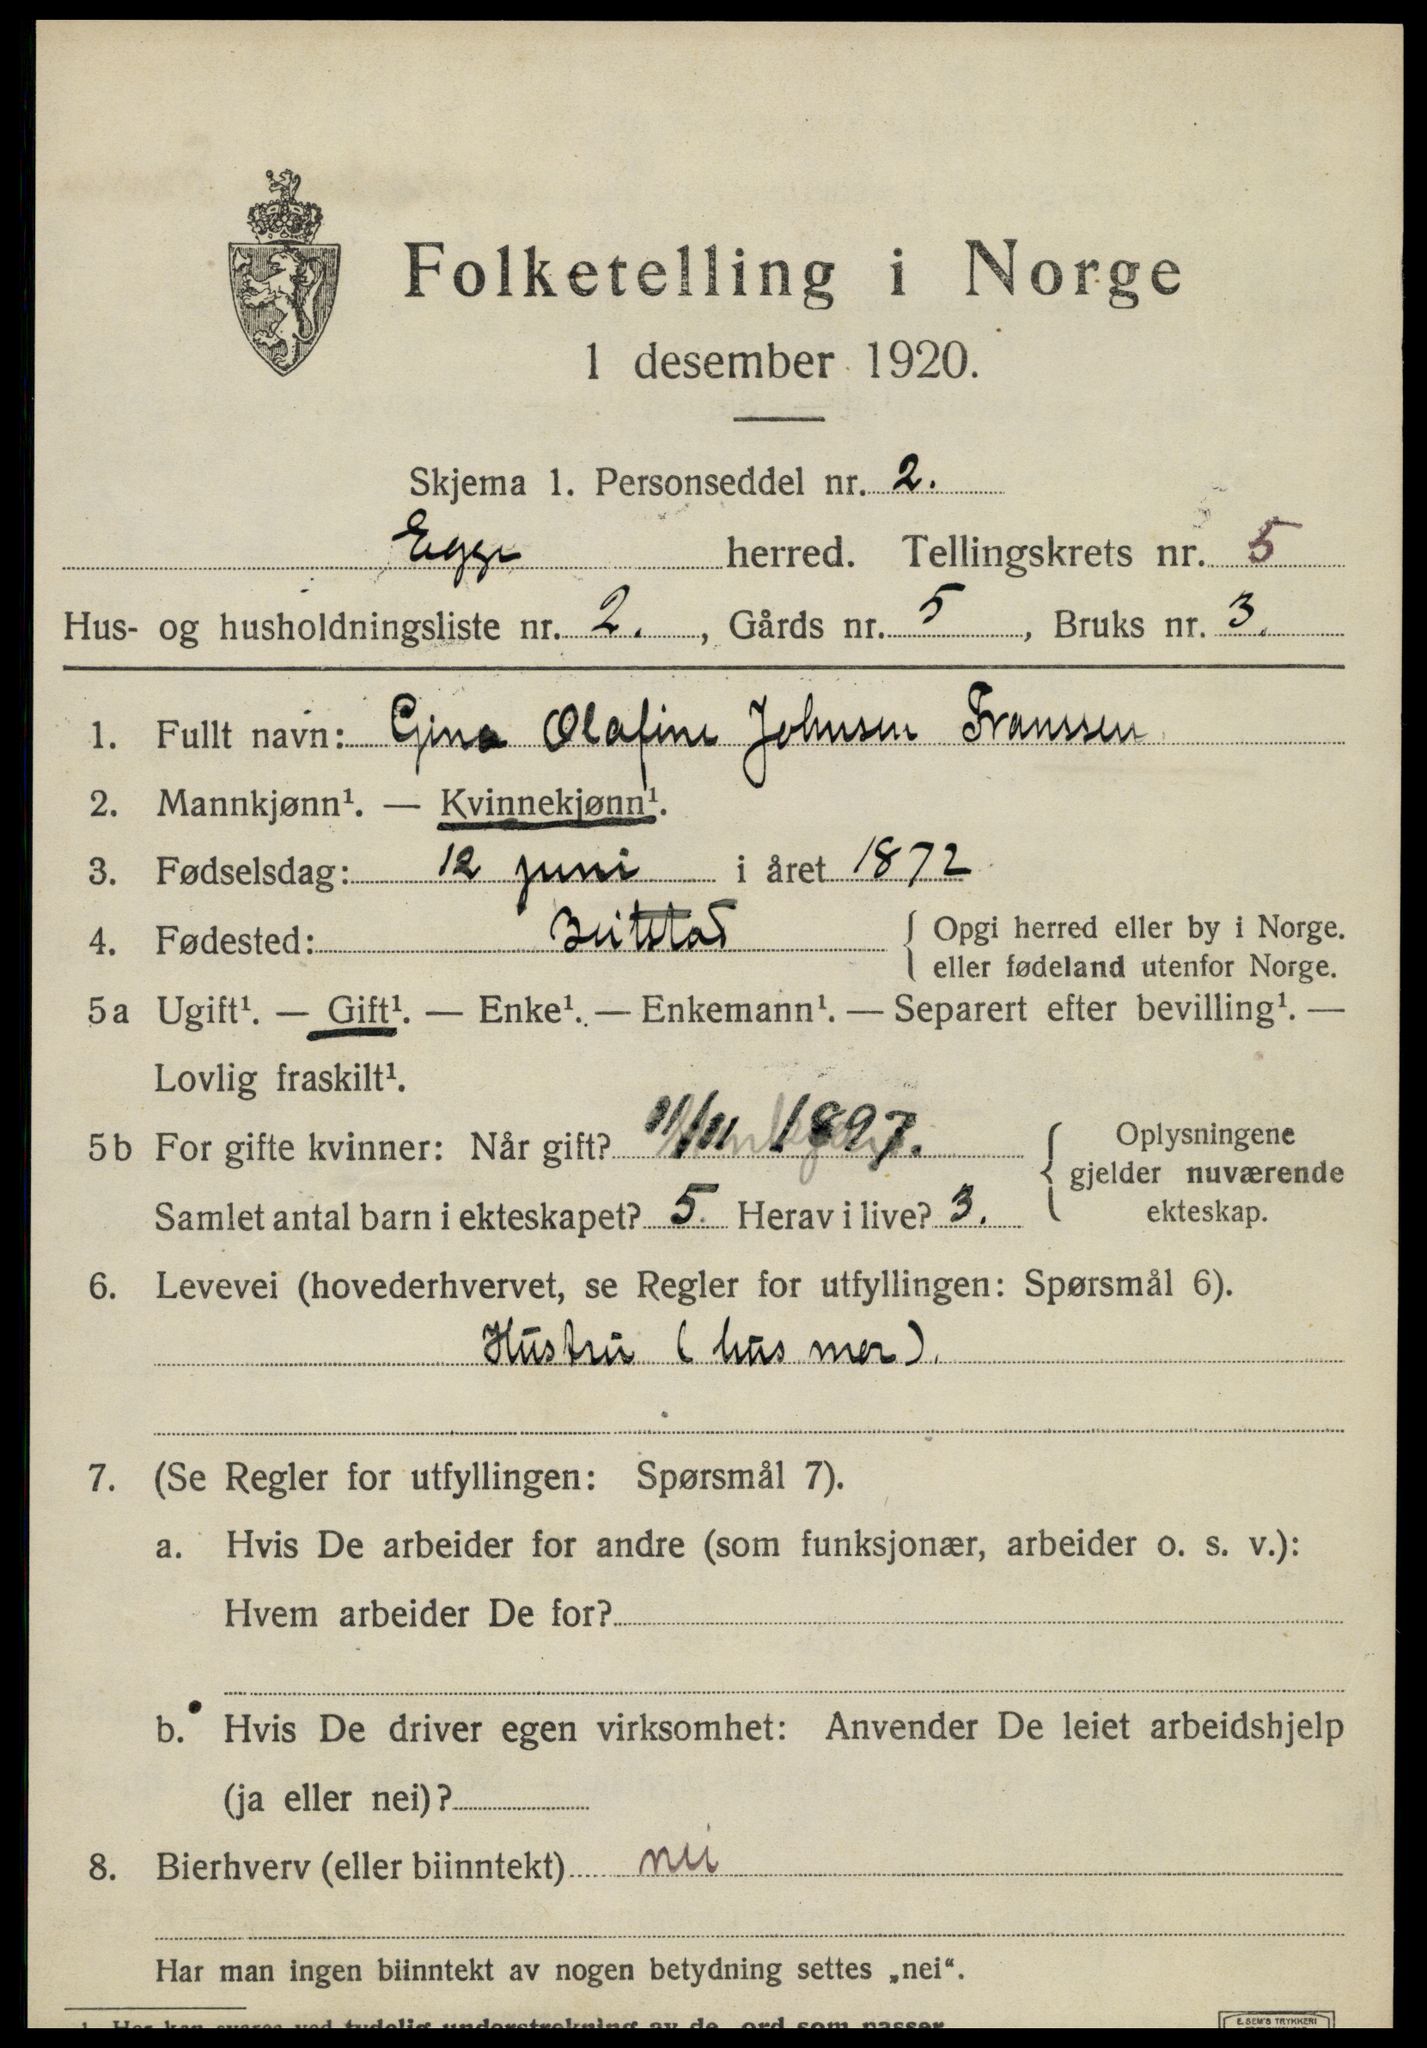 Folketelling i Norge
1 desember 1920.
Skjema 1. Personseddel nr. 2.
Egge herred. Tellingskrets nr. 5
Hus- og husholdningsliste nr. 2., Gårds nr. 5, Bruks nr. 3.
1. Fullt navn: Gina Olafine Johnsen Franssen
2. Mannkjønn¹. — Kvinnekjønn¹.
3. Fødselsdag: 12 juni i året 1872
4. Fødested: Beitstad { Opgi herred eller by i Norge.
eller fødeland utenfor Norge.
5a Ugift¹. — Gift¹. — Enke¹. — Enkemann¹. — Separert efter bevilling¹. —
Lovlig fraskilt¹.
5b For gifte kvinner: Når gift? 11/11 1897. { Oplysningene
gjelder nuværende
Samlet antal barn i ekteskapet? 5. Herav i live? 3. ekteskap.
6. Levevei (hovederhvervet, se Regler for utfyllingen: Spørsmål 6).
Hustru (hus mor).
7. (Se Regler for utfyllingen: Spørsmål 7).
a. Hvis De arbeider for andre (som funksjonær, arbeider o. s. v.):
Hvem arbeider De for?
b. Hvis De driver egen virksomhet: Anvender De leiet arbeidshjelp
(ja eller nei)?
8. Bierhverv (eller biinntekt) nei
Har man ingen biinntekt av nogen betydning settes „nei“.
¹ Her kan svares ved tydelig understrekning av de ord som passer
E. SEM'S TRYKKERI